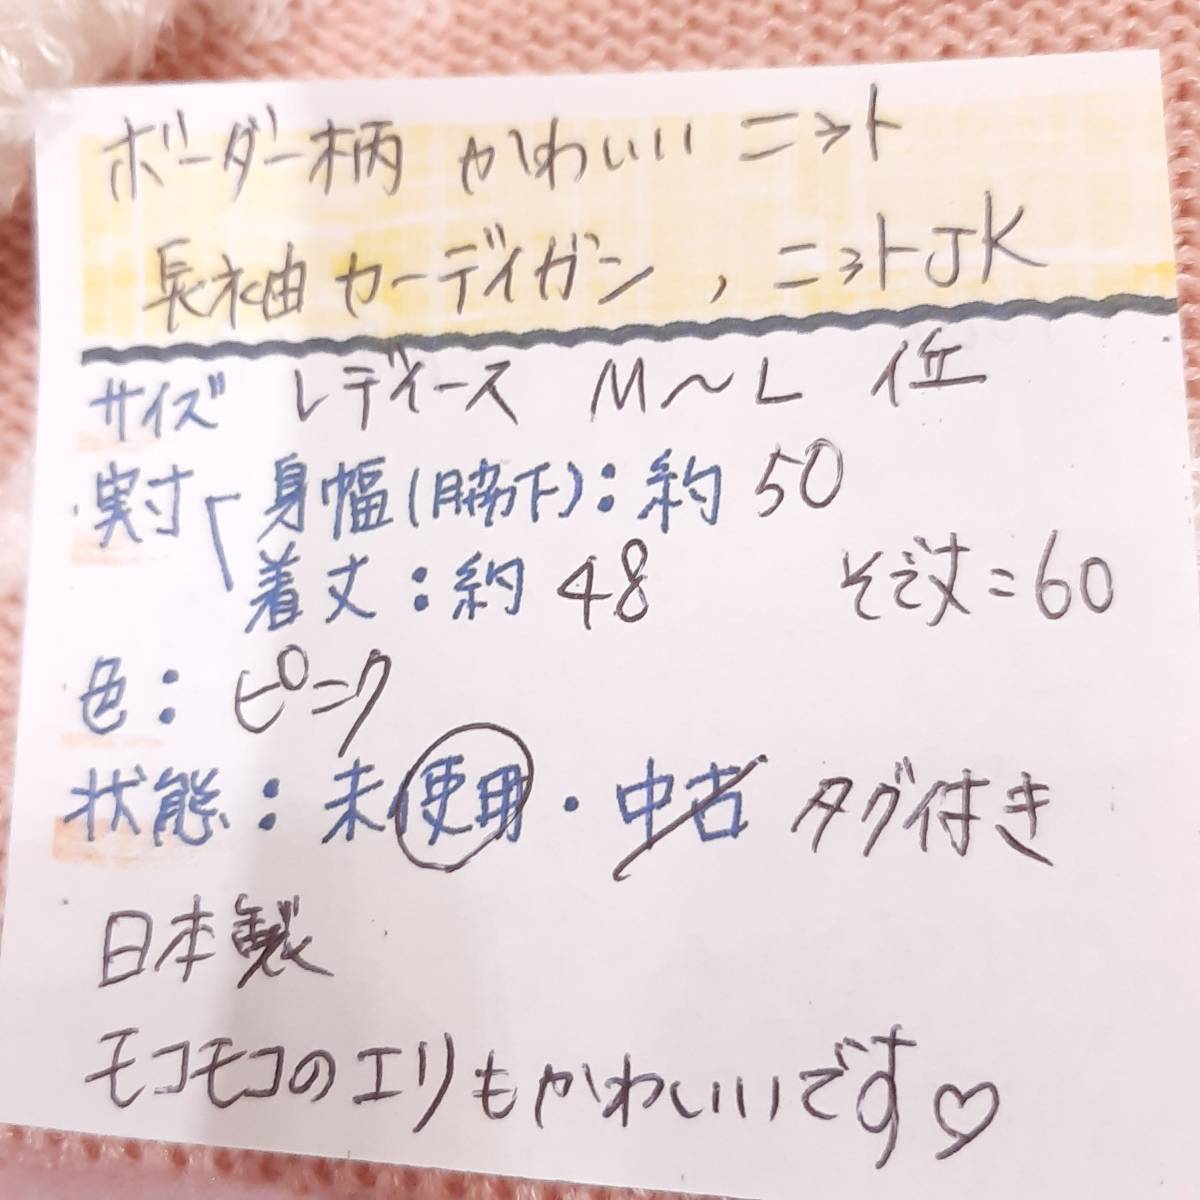 ボーダー柄 かわいい ニット
長袖カーディガン, ニットJK
サイズ レディース M〜L 位
実寸 身幅(脇下):約 50
着丈:約 48 そで丈=60
色: ピンク
状態: 未使用・中古 タグ付き
日本製
モコモコのエリもかわいいです♡